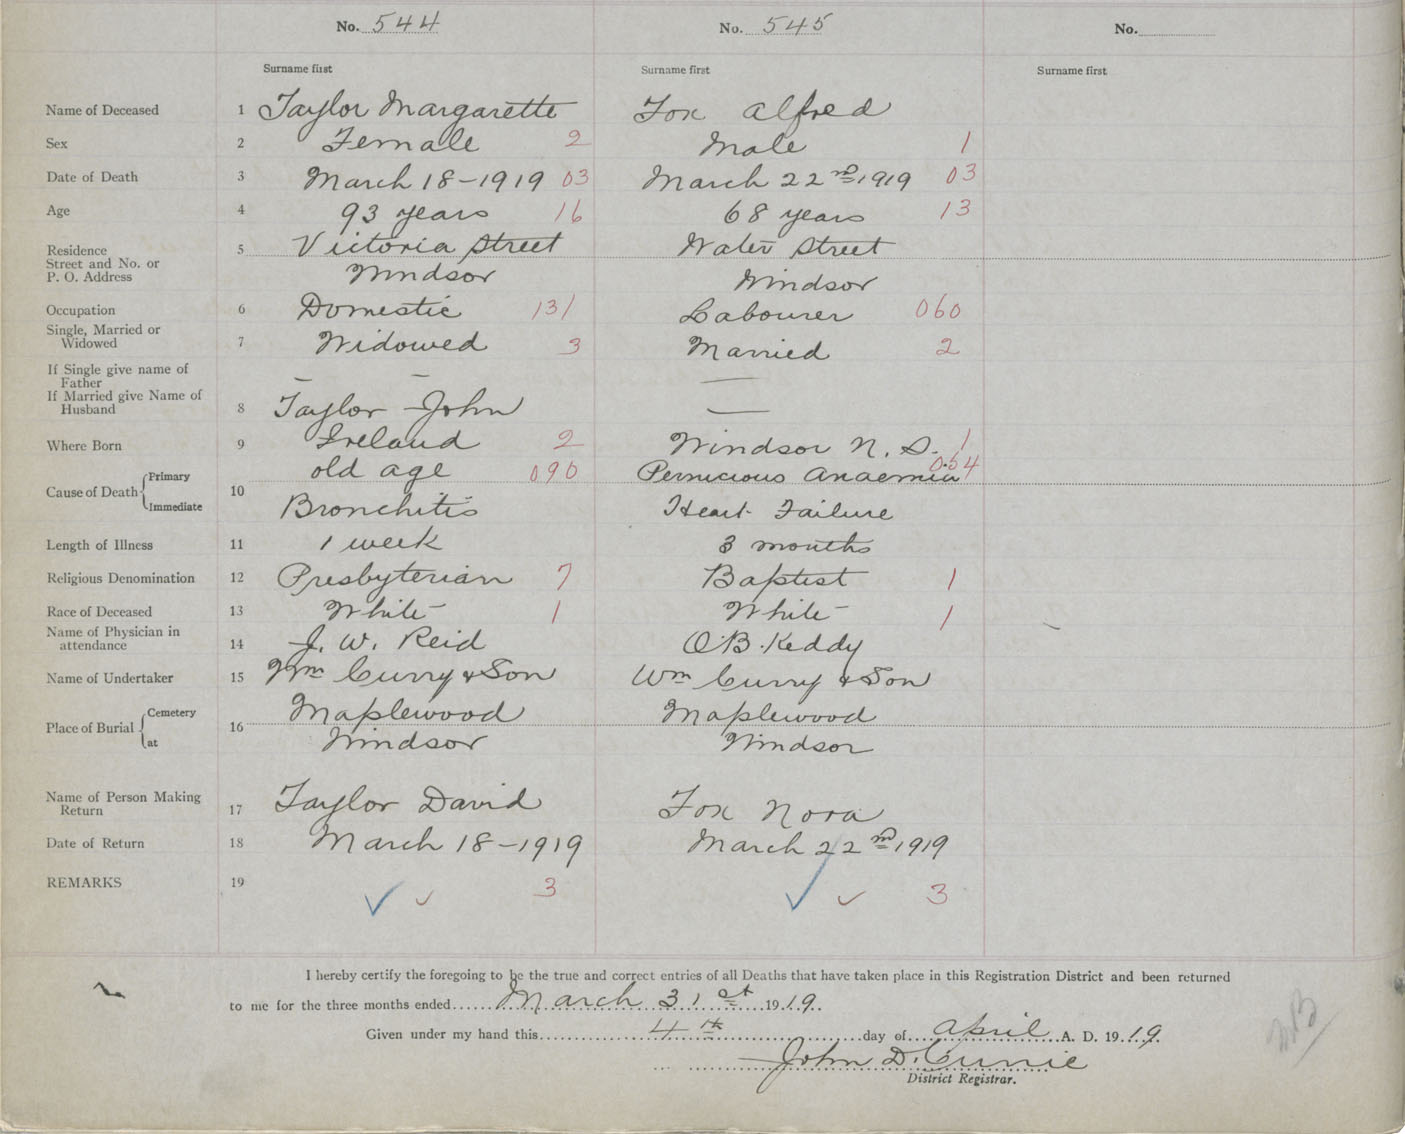 No. 544 No. 545 No.
Surname first Surname first Surname first
Name of Deceased 1 Taylor Margarette Fox Alfred
Sex 2 Female 2 Male 1
Date of Death 3 March 18-1919 03 March 22nd 1919 03
Age 4 93 years 16 68 years 13
Residence 5 Victoria Street Water Street
Street and No. or
P. O. Address Windsor Windsor
Occupation 6 Domestic 131 Labourer 060
Single, Married or
Widowed 7 Widowed 3 Married 2
If Single give name of
Father — — —
If Married give Name of
Husband 8 Taylor John —
Where Born 9 Ireland 2 Windsor N. S. 1
Cause of Death 10 Primary old age 090 Pernicious Anaemia 054
Immediate Bronchitis Heart Failure
Length of Illness 11 1 week 3 months
Religious Denomination 12 Presbyterian 7 Baptist 1
Race of Deceased 13 White 1 White 1
Name of Physician in
attendance 14 J. W. Reid O.B. Keddy
Name of Undertaker 15 Wm Curry & Son Wm Curry & Son
Place of Burial 16 Cemetery Maplewood Maplewood
at Windsor Windsor
Name of Person Making
Return 17 Taylor David Fox Nora
Date of Return 18 March 18-1919 March 22nd 1919
REMARKS 19 ✓ ✓ 3 ✓ ✓ 3
I hereby certify the foregoing to be the true and correct entries of all Deaths that have taken place in this Registration District and been returned
to me for the three months ended March 31st 1919.
Given under my hand this 4th day of April A. D. 1919.
John D. Currie
District Registrar.